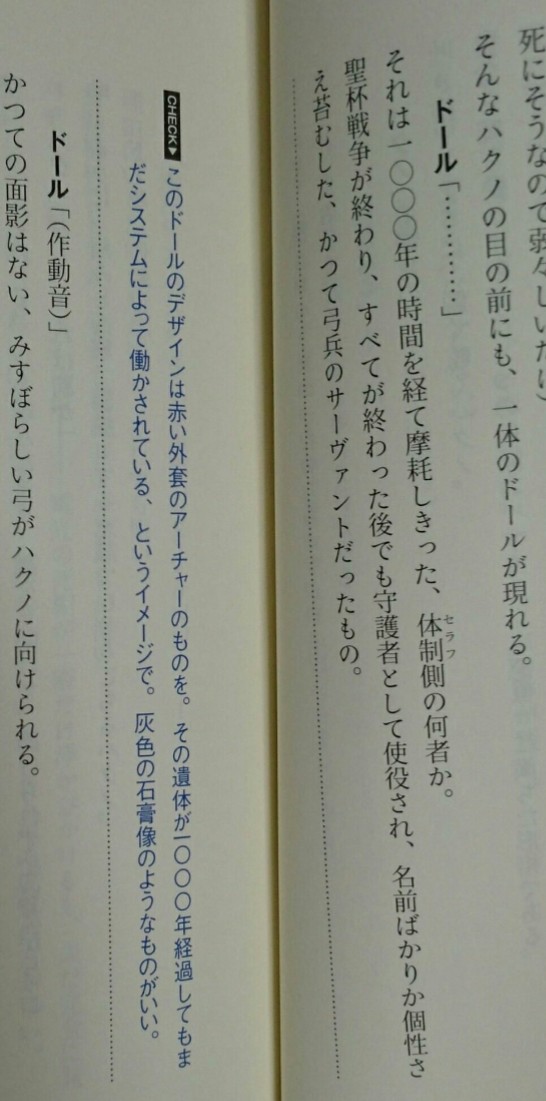 死にそうなので弱々しいだけ)
そんなハクノの目の前にも、一体のドールが現れる。
ドール「…………」
それは一〇〇〇年の時間を経て摩耗しきった、体制側の何者か。
セラフ
聖杯戦争が終わり、すべてが終わった後でも守護者として使役され、名前ばかりか個性さ
え苔むした、かつて弓兵のサーヴァントだったもの。
CHECK▼ このドールのデザインは赤い外套のアーチャーのものを。その遺体が一〇〇〇年経過してもま
だシステムによって働かされている、というイメージで。灰色の石膏像のようなものがいい。
ドール「(作動音)」
かつての面影はない、みすぼらしい弓がハクノに向けられる。